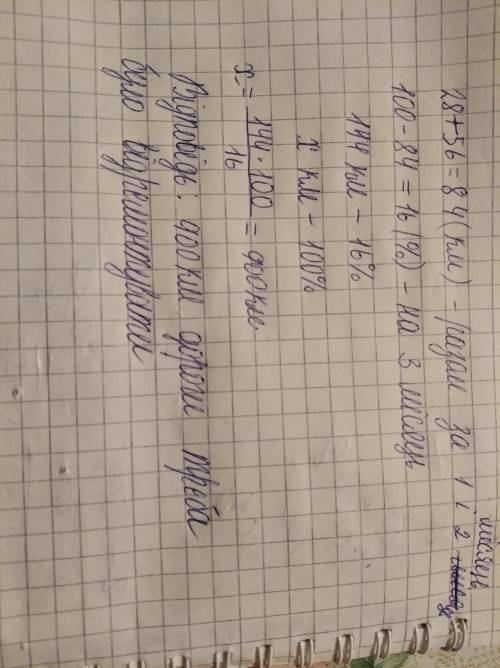 28+56=84(км) - разом за 1 і 2 місяць
100-84=16(%) - на 3 місяць
144 км - 16%
х км - 100%
х = 144·100 / 16 = 900км
Відповідь: 900км дороги треба
було відремонтувати